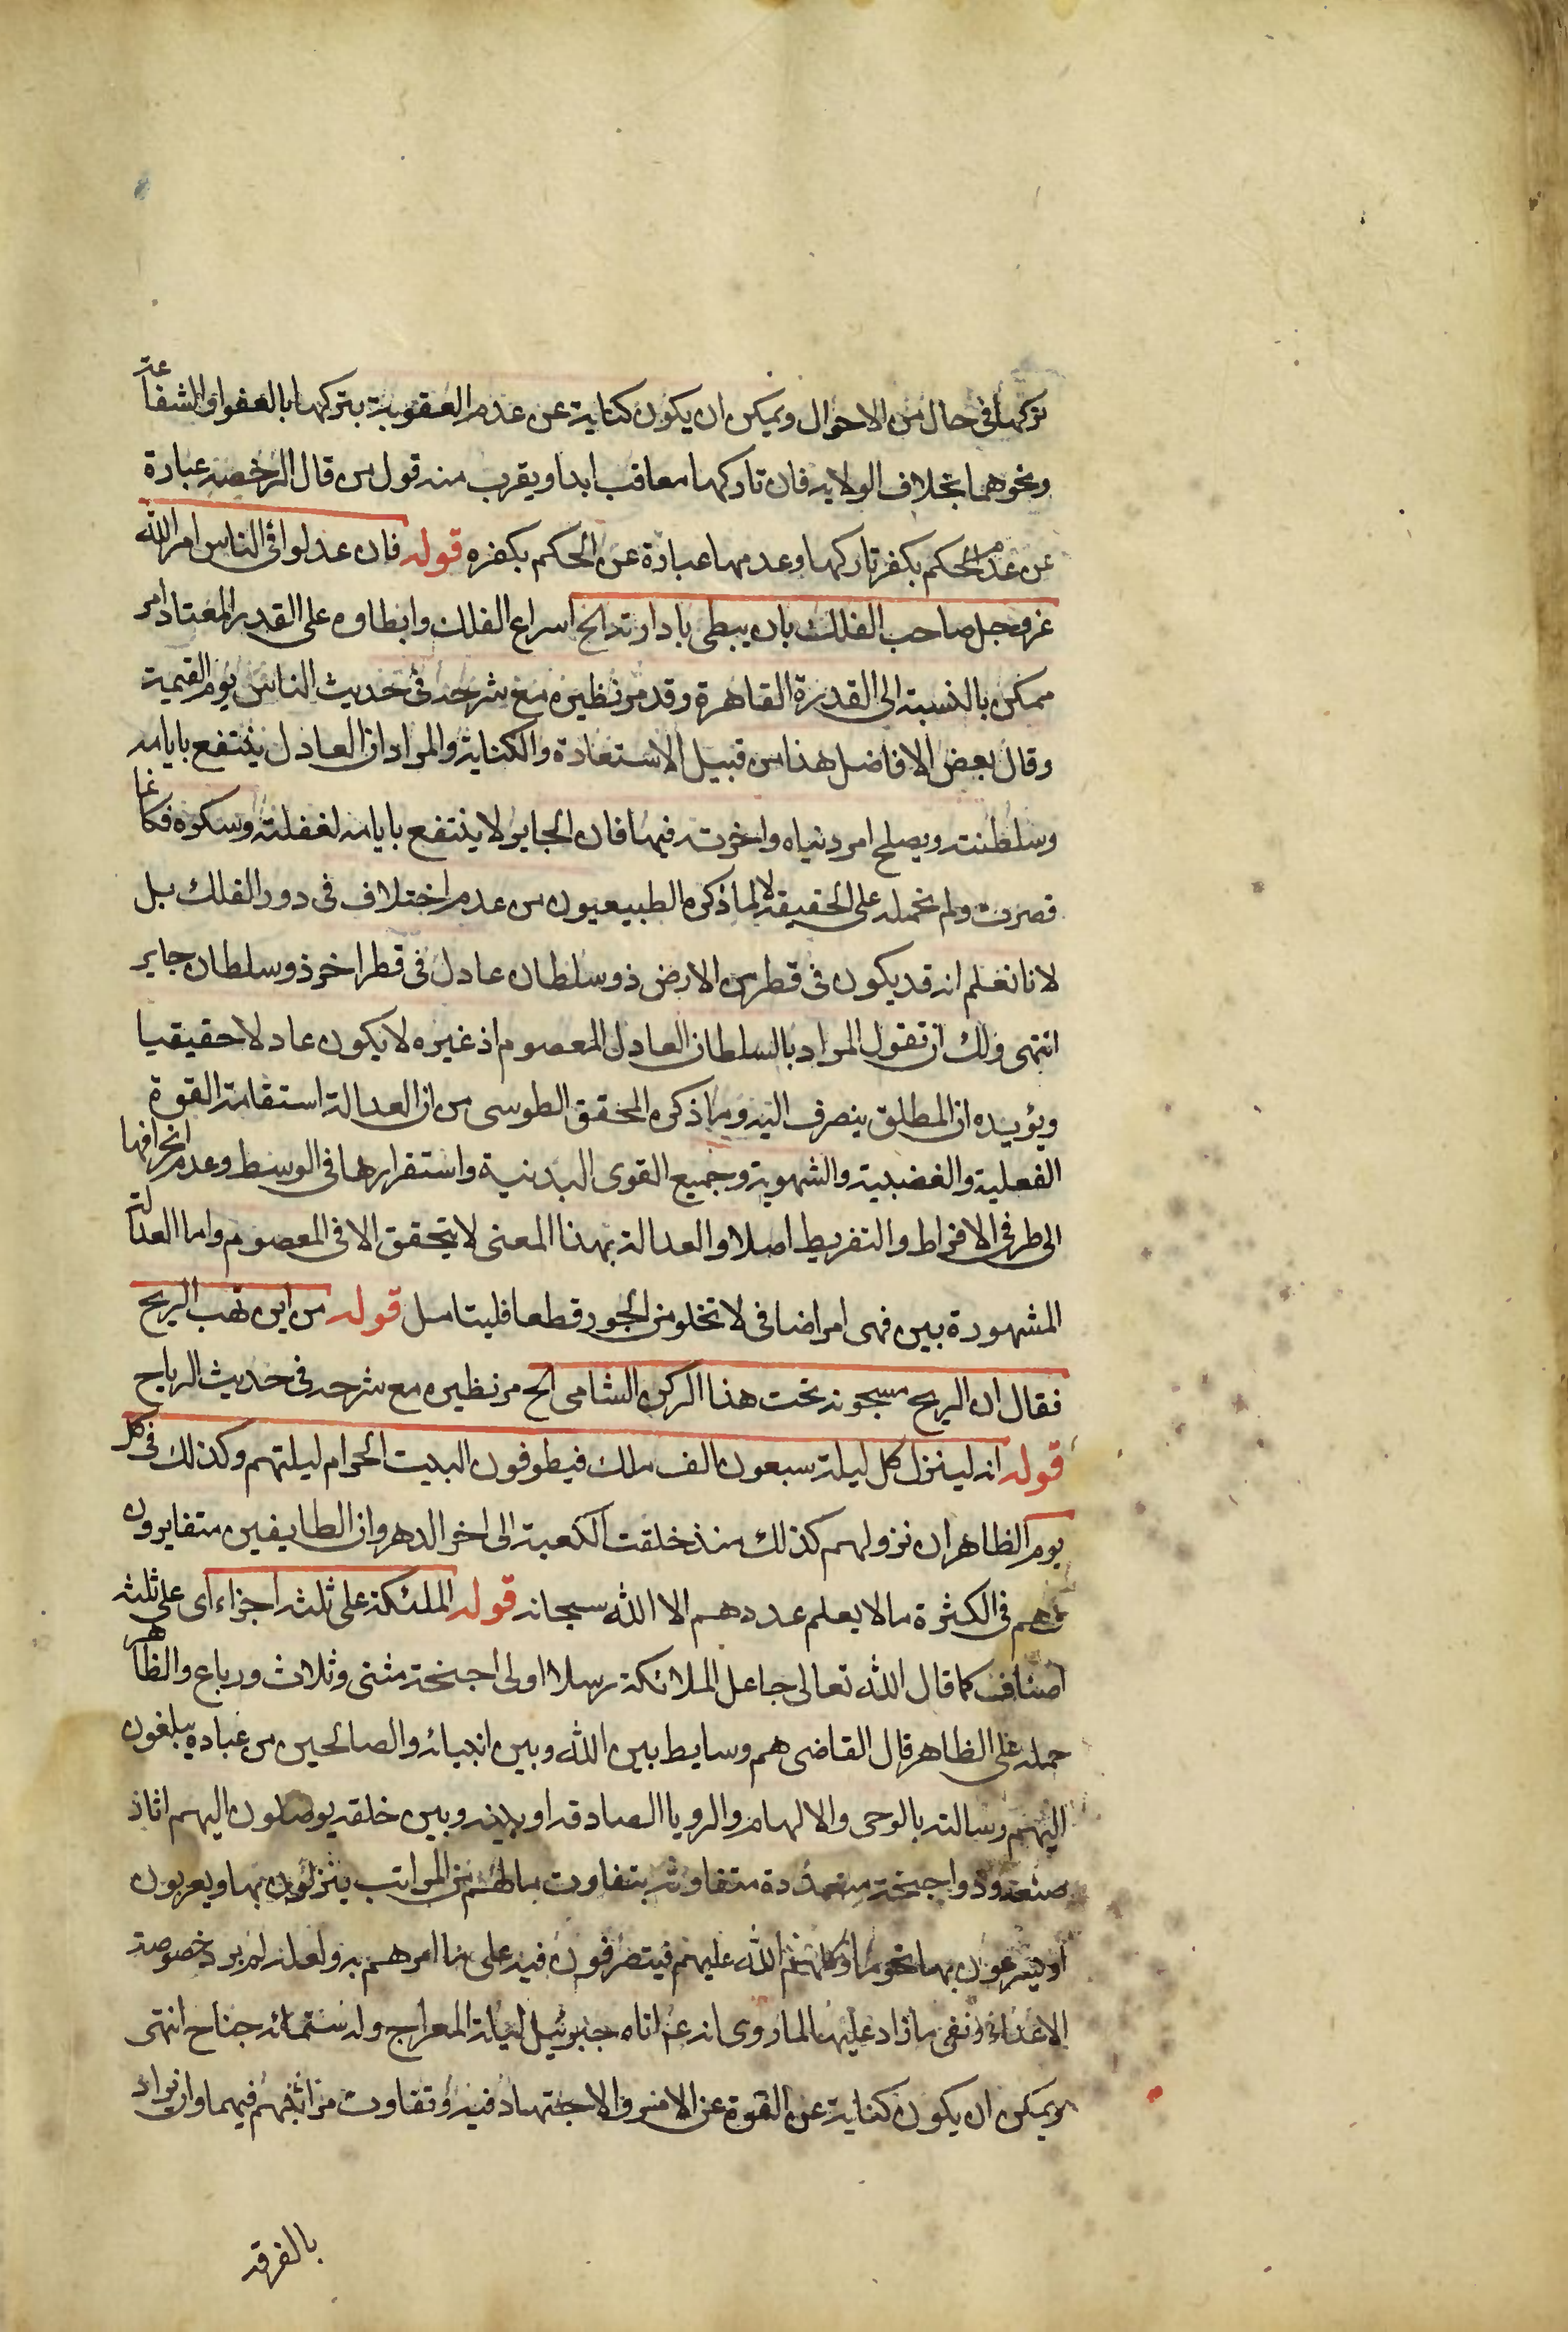 تركها فى حال من الاحوال ويمكن ان يكون كناية عن عدم العقوبة بتركها بالعفو او الشفاعة
ونحوهما بخلاف الولاية فان تاركها معاقب ابدا ويقرب منه قول من قال الرخصة عبارة
عن عدم الحكم بكفر تاركها وعدمها عبارة عن الحكم بكفره قوله فان عدلوا فى الناس امر الله
عز وجل صاحب الفلك بان يبطى بادارته الخ اسراع الفلك وابطاوه على القدر المعتاد امر
ممكن بالنسبة الى القدرة القاهرة وقد مر نظيره مع شرحه فى حديث الناس يوم القيمة
وقال بعض الافاضل هذا من قبيل الاستعارة والكناية والمراد ان العادل ينتفع بايامه
وسلطنته ويصلح امر دنياه واخرته فيها فان الجاير لا ينتفع بايامه لغفلته وسكره فكانما
قصرت ولم نحمله على الحقيقة لا لما ذكره الطبيعيون من عدم اختلاف فى دور الفلك بل
لانا نعلم انه قد يكون فى قطر من الارض ذو سلطان عادل فى قطر اخر ذو سلطان جاير
انتهى ولك ان تقول المراد بالسلطان العادل المعصوم اذ غيره لا يكون عادلا حقيقيا
ويؤيده ان المطلق ينصرف اليه وما ذكره المحقق الطوسى من ان العدالة استقامة القوة
الفعلية والغضبية والشهوية وجميع القوى البدنية واستقرارها فى الوسط وعدم انحرافها
الى طرفى الافراط والتفريط اصلا والعدالة بهذا المعنى لا يتحقق الا فى المعصوم واما العدالة
المشهورة بين فهى امر اضافى لا تخلو من الجور قطعا فليتامل قوله من اين تهب الريح
فقال ان الريح مسجونة تحت هذا الركن الشامى الخ مر نظيره مع شرحه فى حديث الرياح
قوله انه لينزل كل ليلة سبعون الف ملك فيطوفون البيت الحرام ليلتهم وكذلك فى كل
يوم الظاهر ان نزولهم كذلك منذ خلقت الكعبة الى اخر الدهر وان الطايفين متغايرون
فهم فى الكثرة ما لا يعلم عددهم الا الله سبحانه قوله الملئكة على ثلثة اجزاء اى على ثلثة
اصناف كما قال الله تعالى جاعل الملائكة رسلا اولى اجنحة مثنى وثلاث ورباع والظاهر
حمله على الظاهر قال القاضى هم وسايط بين الله وبين انبيائه والصالحين من عباده يبلغون
اليهم رسالته بالوحى والالهام والرويا الصادقة او بينه وبين خلقه يوصلون اليهم اثار
صنعه وذو اجنحة متعددة متفاوتة بتفاوت ما لهم من المراتب ينزلون بها ويعرجون
او يسرعون بها نحو ما وكلهم الله عليهم فيتصرفون فيه على ما امرهم به ولعله لم يرد خصوصة
الاعداد ونفى ما زاد عليها لما روى انه عم اتاه جبرئيل ليلة المعراج وله ستمائه جناح انتهى
ويمكن ان يكون كناية عن القوة عن الامر والاجتهاد فيه وتفاوت مراتبهم فيهما وان يراد
بالفرقة